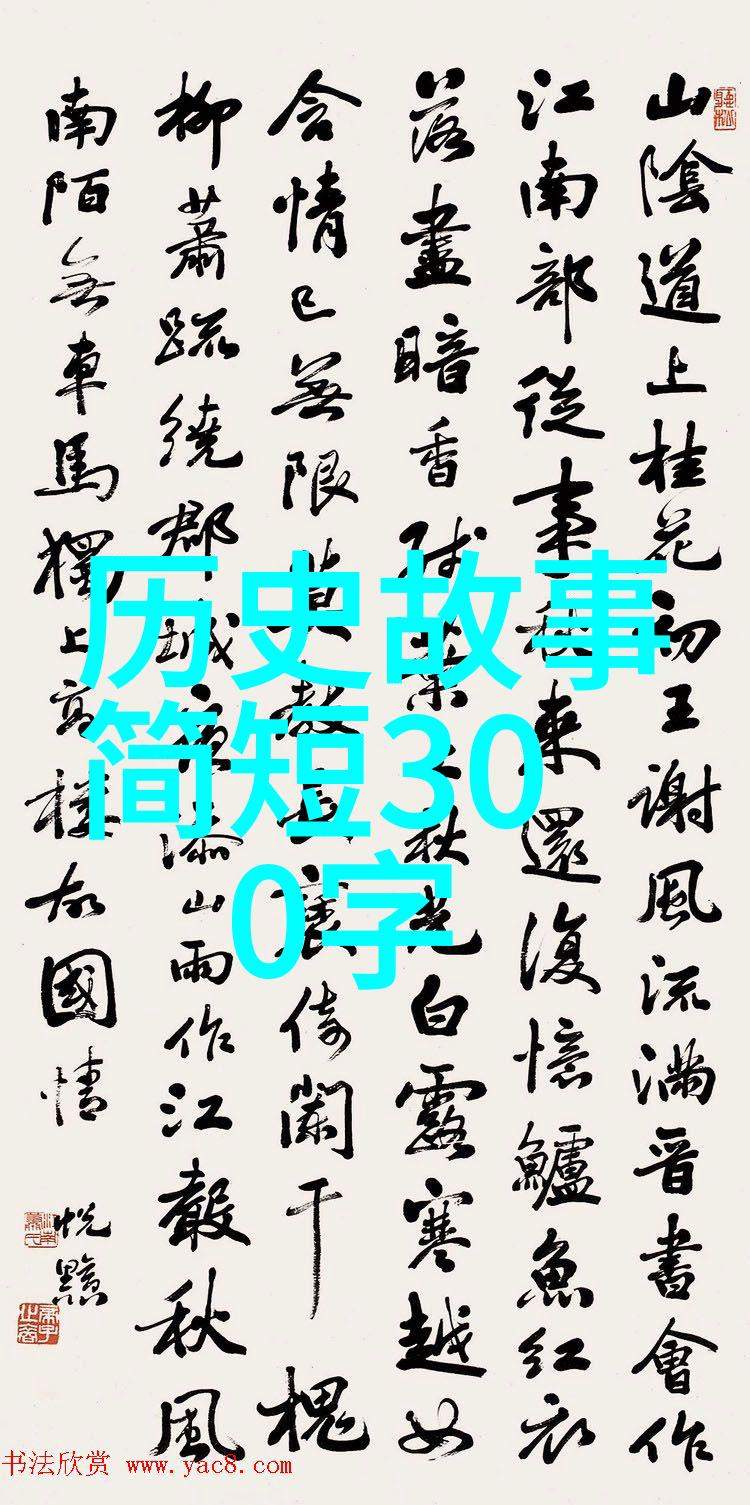 山陰道上桂花初王謝風流滿晋書會作
江南部從事秋來還復憶鱸魚紅衣
落盡暗香 秋光白露寒越女
含情已無限莫教長袖倚闌干 槐
柳蕭疏繞郡城夜添山雨作江聲秋風
南陌無車馬獨上高樓故國情
历史故事
简短30
0字
书法欣赏 www.yac8.com